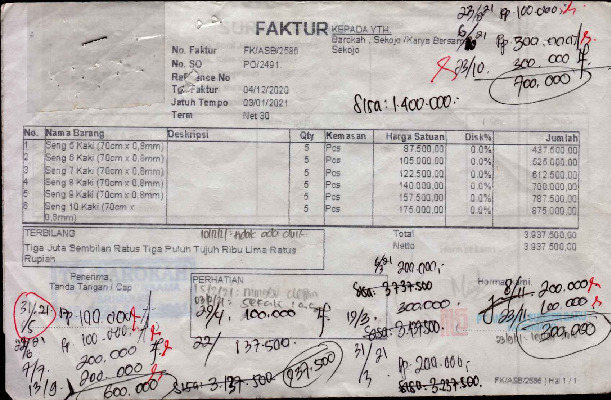 FAKTUR
KEPADA YTH.
Barokah , Sekojo /Karya Bersama
Sekojo
No. Faktur FK/ASB/2586
No. SO PO/2491
Reference No
Tgl Faktur 04/12/2020
Jatuh Tempo 03/01/2021
Term Net 30
Rp 100.000
300.000
23/10. 300.000
700.000
Sisa : 1.400.000.-
No. Nama Barang Deskripsi Qty Kemasan Harga Satuan Disk% Jumlah
1 Seng 5 Kaki (70cm x 0,8mm) 5 Pcs 87.500,00 0.0% 437.500,00
2 Seng 6 Kaki (70cm x 0,8mm) 5 Pcs 105.000,00 0.0% 525.000,00
3 Seng 7 Kaki (70cm x 0,8mm) 5 Pcs 122.500,00 0.0% 612.500,00
4 Seng 8 Kaki (70cm x 0,8mm) 5 Pcs 140.000,00 0.0% 700.000,00
5 Seng 9 Kaki (70cm x 0,8mm) 5 Pcs 157.500,00 0.0% 787.500,00
6 Seng 10 Kaki (70cm x 0,8mm) 5 Pcs 175.000,00 0.0% 875.000,00
TERBILANG
Tiga Juta Sembilan Ratus Tiga Puluh Tujuh Ribu Lima Ratus
Rupiah
Total 3.937.500,00
Netto 3.937.500,00
200.000,-
Sisa: 3.737.500
Penerima,
Tanda Tangan / Cap
PERHATIAN
Hormat Kami,
31/5 21 Rp 100.000
Rp 100.000
7/7 200.000
13/9 200.000
600.000
29/4 100.000
22/ 137.500
Sisa: 3.137.500
937.500
19/3 300.000
Sisa: 3.437.500
31/3 21 Rp 200.000,-
Sisa: 3.237.500
8/11 200.000
23/11 100.000
300.000
FK/ASB/2586 | Hal 1 / 1